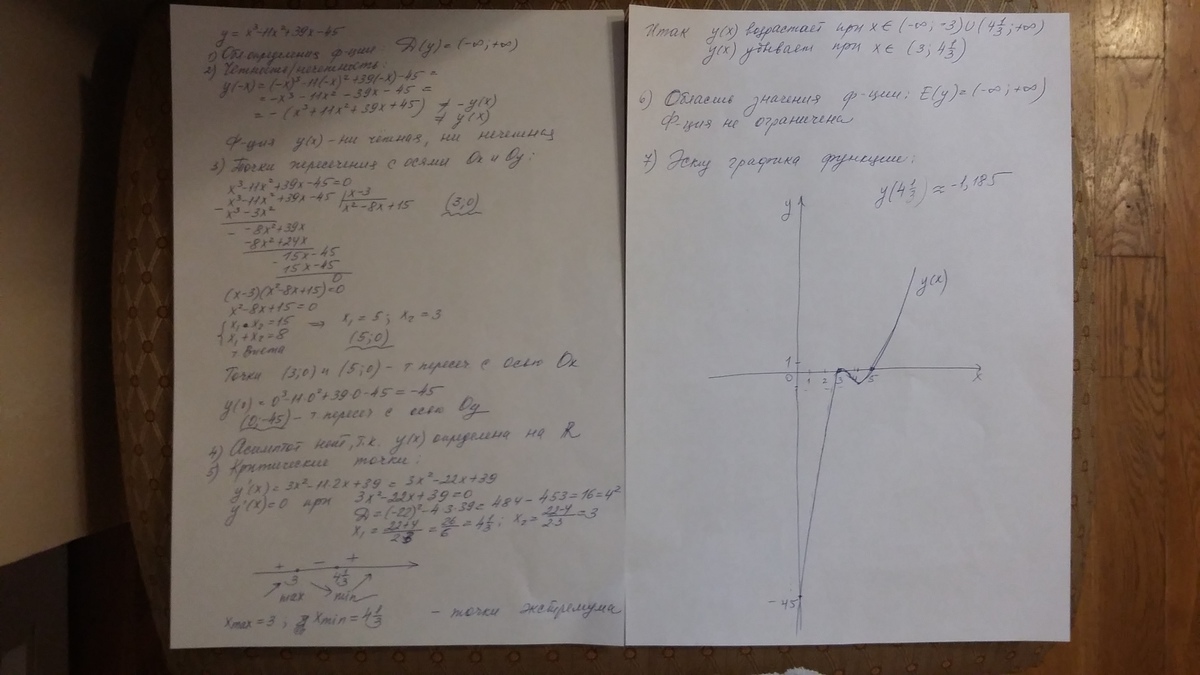 y = x³-11x²+39x-45
1) Обл определения ф-ции: D(y) = (-∞; +∞)
2) Чётность/нечетность:
y(-x) = (-x)³-11(-x)²+39(-x)-45 =
= -x³-11x²-39x-45 =
= -(x³+11x²+39x+45) ≠ -y(x)
≠ y(x)
Ф-ция y(x) - ни чётная, ни нечетная
3) Точки пересечения с осями Ox и Oy:
x³-11x²+39x-45=0
x³-11x²+39x-45 | x-3
x³-3x² x²-8x+15 (3;0)
-8x²+39x
-8x²+24x
15x-45
15x-45
0
(x-3)(x²-8x+15)=0
x²-8x+15=0
x₁•x₂=15 ⇒ x₁=5; x₂=3
x₁+x₂=8
т Виета (5;0)
Точки (3;0) и (5;0) - т пересеч с осью Ox
y(0)=0³-11·0²+39·0-45=-45
(0;-45) - т.пересеч с осью Oy
4) Асимптот нет, т.к. y(x) определена на R
5) Критические точки:
y'(x)=3x²-11·2x+39=3x²-22x+39
y'(x)=0 при 3x²-22x+39=0
D=(-22)²-4·3·39=484-453=16=4²
x₁=(22+4)/(2·3)=26/6=4⅓; x₂=(22-4)/(2·3)=3
+ - +
3 4⅓
max min
xmax=3; xmin=4⅓ - точки экстремума
Итак y(x) возрастает при x∈(-∞;-3)∪(4⅓;+∞)
y(x) убывает при x∈(3;4⅓)
6) Область значения ф-ции: E(y)=(-∞;+∞)
Ф-ция не ограничена
7) Эскиз графика функции:
y(4⅓)≈-1,185
y
y(x)
1
0 1 2 3 4 5 x
-45